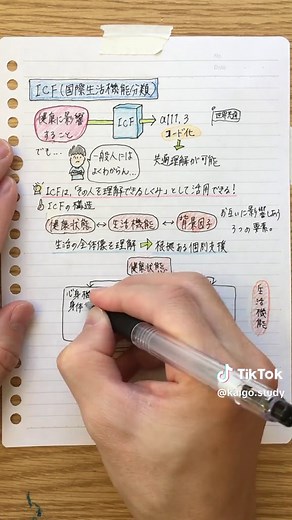 ICF(国際生活機能分類)
健康に影響
すること
ICF
α111.3
コード化
世界共通
でも…
一般人には
よくわからん…
共通理解が可能
ICFは、「その人を理解できるしくみ」として活用できる!
ICFの構造
健康状態 ↔ 生活機能 ↔ 背景因子
お互いに影響しあう
3つの要素。
生活の全体像を理解 → 根拠ある個別支援
健康状態
心身機
身体
生活機能
TikTok
@kaigo.study